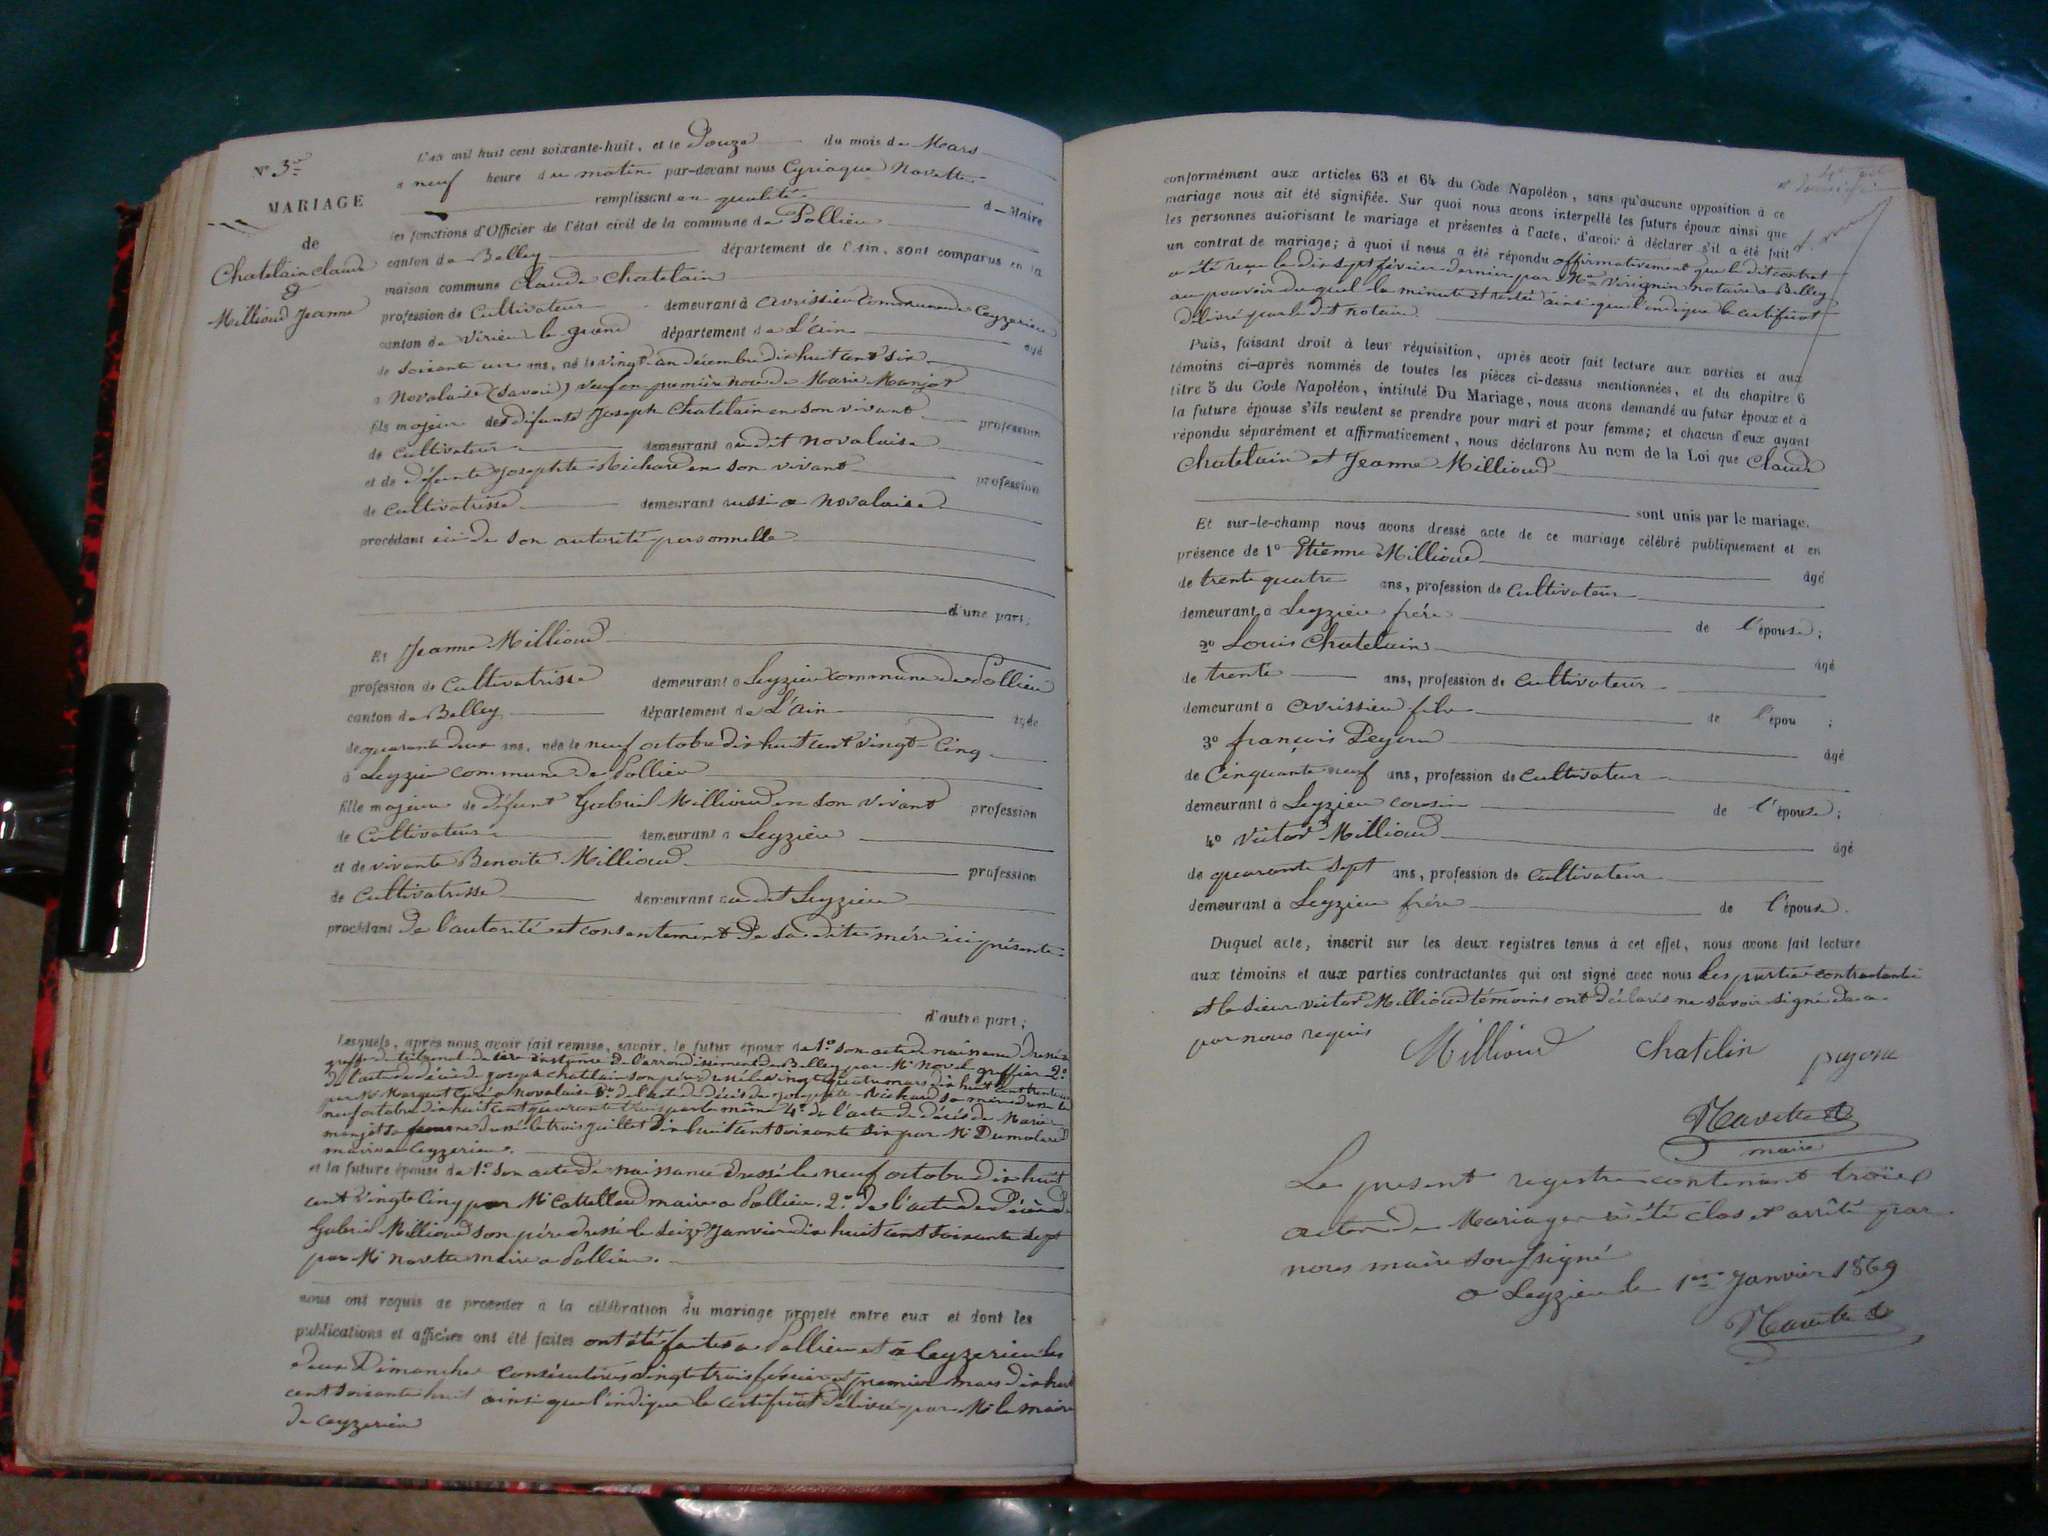 N° 3e
MARIAGE
de
Chatelain Claude
&
Millioud Jeanne
L'an mil huit cent soixante-huit, et le Douze du mois de Mars
a neuf heure du matin par-devant nous Cyriaque Navette
remplissant en qualité d Maire
les fonctions d'Officier de l'état civil de la commune de Pollieu
canton de Belley département de l'Ain, sont comparus en la
maison commune Claude Chatelain
profession de Cultivateur demeurant à avrissieu Commune de Ceyzerieu
canton de Virieu le grand département de L'ain agé
de soixante un ans, né le vingt un décembre dix huit cent six
a Novalaise (Savoie) veuf en première noce de Marie Monjot
fils majeur des défunts Joseph Chatelain en son vivant profession
de Cultivateur demeurant audit novalaise
et de défunte Josephte Richard en son vivant profession
de Cultivatrisse demeurant aussi a novalaise
procédant ici de son autorité personnelle
d'une part;
Et Jeanne Millioud
profession de Cultivatrisse demeurant a Leyzieu commune de Pollieu
canton de Belley département de L'Ain agée
de quarante deux ans, née le neuf octobre dix huit cent vingt-Cinq
à Leyzieu commune de Pollieu
fille majeure de défunt Gabriel Millioud en son vivant profession
de Cultivateur demeurant a Leyzieu
et de vivante Benoite Millioud profession
de Cultivatrisse demeurant audit Leyzieu
procédant de l'autorité et consentement de sa dite mère ici présente
d'autre part;
Lesquels, après nous avoir fait remise, savoir, le futur époux de 1° son acte de naissance dressé
greffe du tribunal de 1ère instance de l'arrondissement de Belley par Mr Novel greffier 2°
de l'acte de décès de Joseph Chatelain son père dressé le vingt quatre mars dix huit cent
par Mr curé a Novalaise 3° de l'acte de décès de Josephte Richard sa mère dressé le
neuf octobre dix huit cent quarante trois par le même 4° de l'acte de décès de Marie
monjot sa femme dressé le trois juillet dix huit cent soixante six par Mr Dumolard
maire a Ceyzerieu.
et la future épouse de 1° son acte de naissance dressé le neuf octobre dix huit
cent vingt Cinq par Mr maire a Pollieu. 2° de l'acte de Décès de
Gabriel Millioud son père dressé le seize Janvier dix huit cent soixante sept
par Mr navette maire a Pollieu.
nous ont requis de procéder à la célébration du mariage projeté entre eux et dont les
publications et affiches ont été faites ont été faites a Pollieu et a Ceyzerieu les
deux Dimanches consécutives vingt trois février et premier mars dix huit
cent soixante huit ainsi que l'indique le certificat délivré par Mr le maire
de ceyzerieu
conformément aux articles 63 et 64 du Code Napoléon, sans qu'aucune opposition à ce
mariage nous ait été signifiée. Sur quoi nous avons interpellé les futurs époux ainsi que
les personnes autorisant le mariage et présentes à l'acte, d'avoir à déclarer s'il a été fait
un contrat de mariage; à quoi il nous a été répondu affirmativement que le dit contrat
a été reçu le dix sept février dernier par Me notaire a Belley
au pouvoir du quel la minute est restée ainsi que l'indique le certificat
délivré par le dit notaire.
Puis, faisant droit à leur réquisition, après avoir fait lecture aux parties et aux
témoins ci-après nommés de toutes les pièces ci-dessus mentionnées, et du chapitre 6
titre 5 du Code Napoléon, intitulé Du Mariage, nous avons demandé au futur époux et à
la future épouse s'ils veulent se prendre pour mari et pour femme; et chacun d'eux ayant
répondu séparément et affirmativement, nous déclarons Au nom de la Loi que Claude
Chatelain et Jeanne Millioud
sont unis par le mariage.
Et sur-le-champ nous avons dressé acte de ce mariage célébré publiquement et en
présence de 1° Etienne Millioud agé
de trente quatre ans, profession de Cultivateur
demeurant à Leyzieu frére de l'épouse;
2° Louis Chatelain agé
de trente ans, profession de Cultivateur
demeurant a avrissieu fils de l'épou ;
3° françois Peysson agé
de Cinquante neuf ans, profession de Cultivateur
demeurant à Leyzieu cousin de l'épouse;
4° Victor Millioud agé
de quarante sept ans, profession de Cultivateur
demeurant à Leyzieu frére de l'épouse.
Duquel acte, inscrit sur les deux registres tenus à cet effet, nous avons fait lecture
aux témoins et aux parties contractantes qui ont signé avec nous Les parties contractantes
et le sieur victor Millioud témoins ont déclarés ne savoir signé de ce
par nous requis
Millioud Chatelin
Navette
maire
Le present registre contenant troies
actes de Mariage a été clos et arrêté par
nous maire soussigné
a Leyzieu le 1er Janvier 1869
Navette